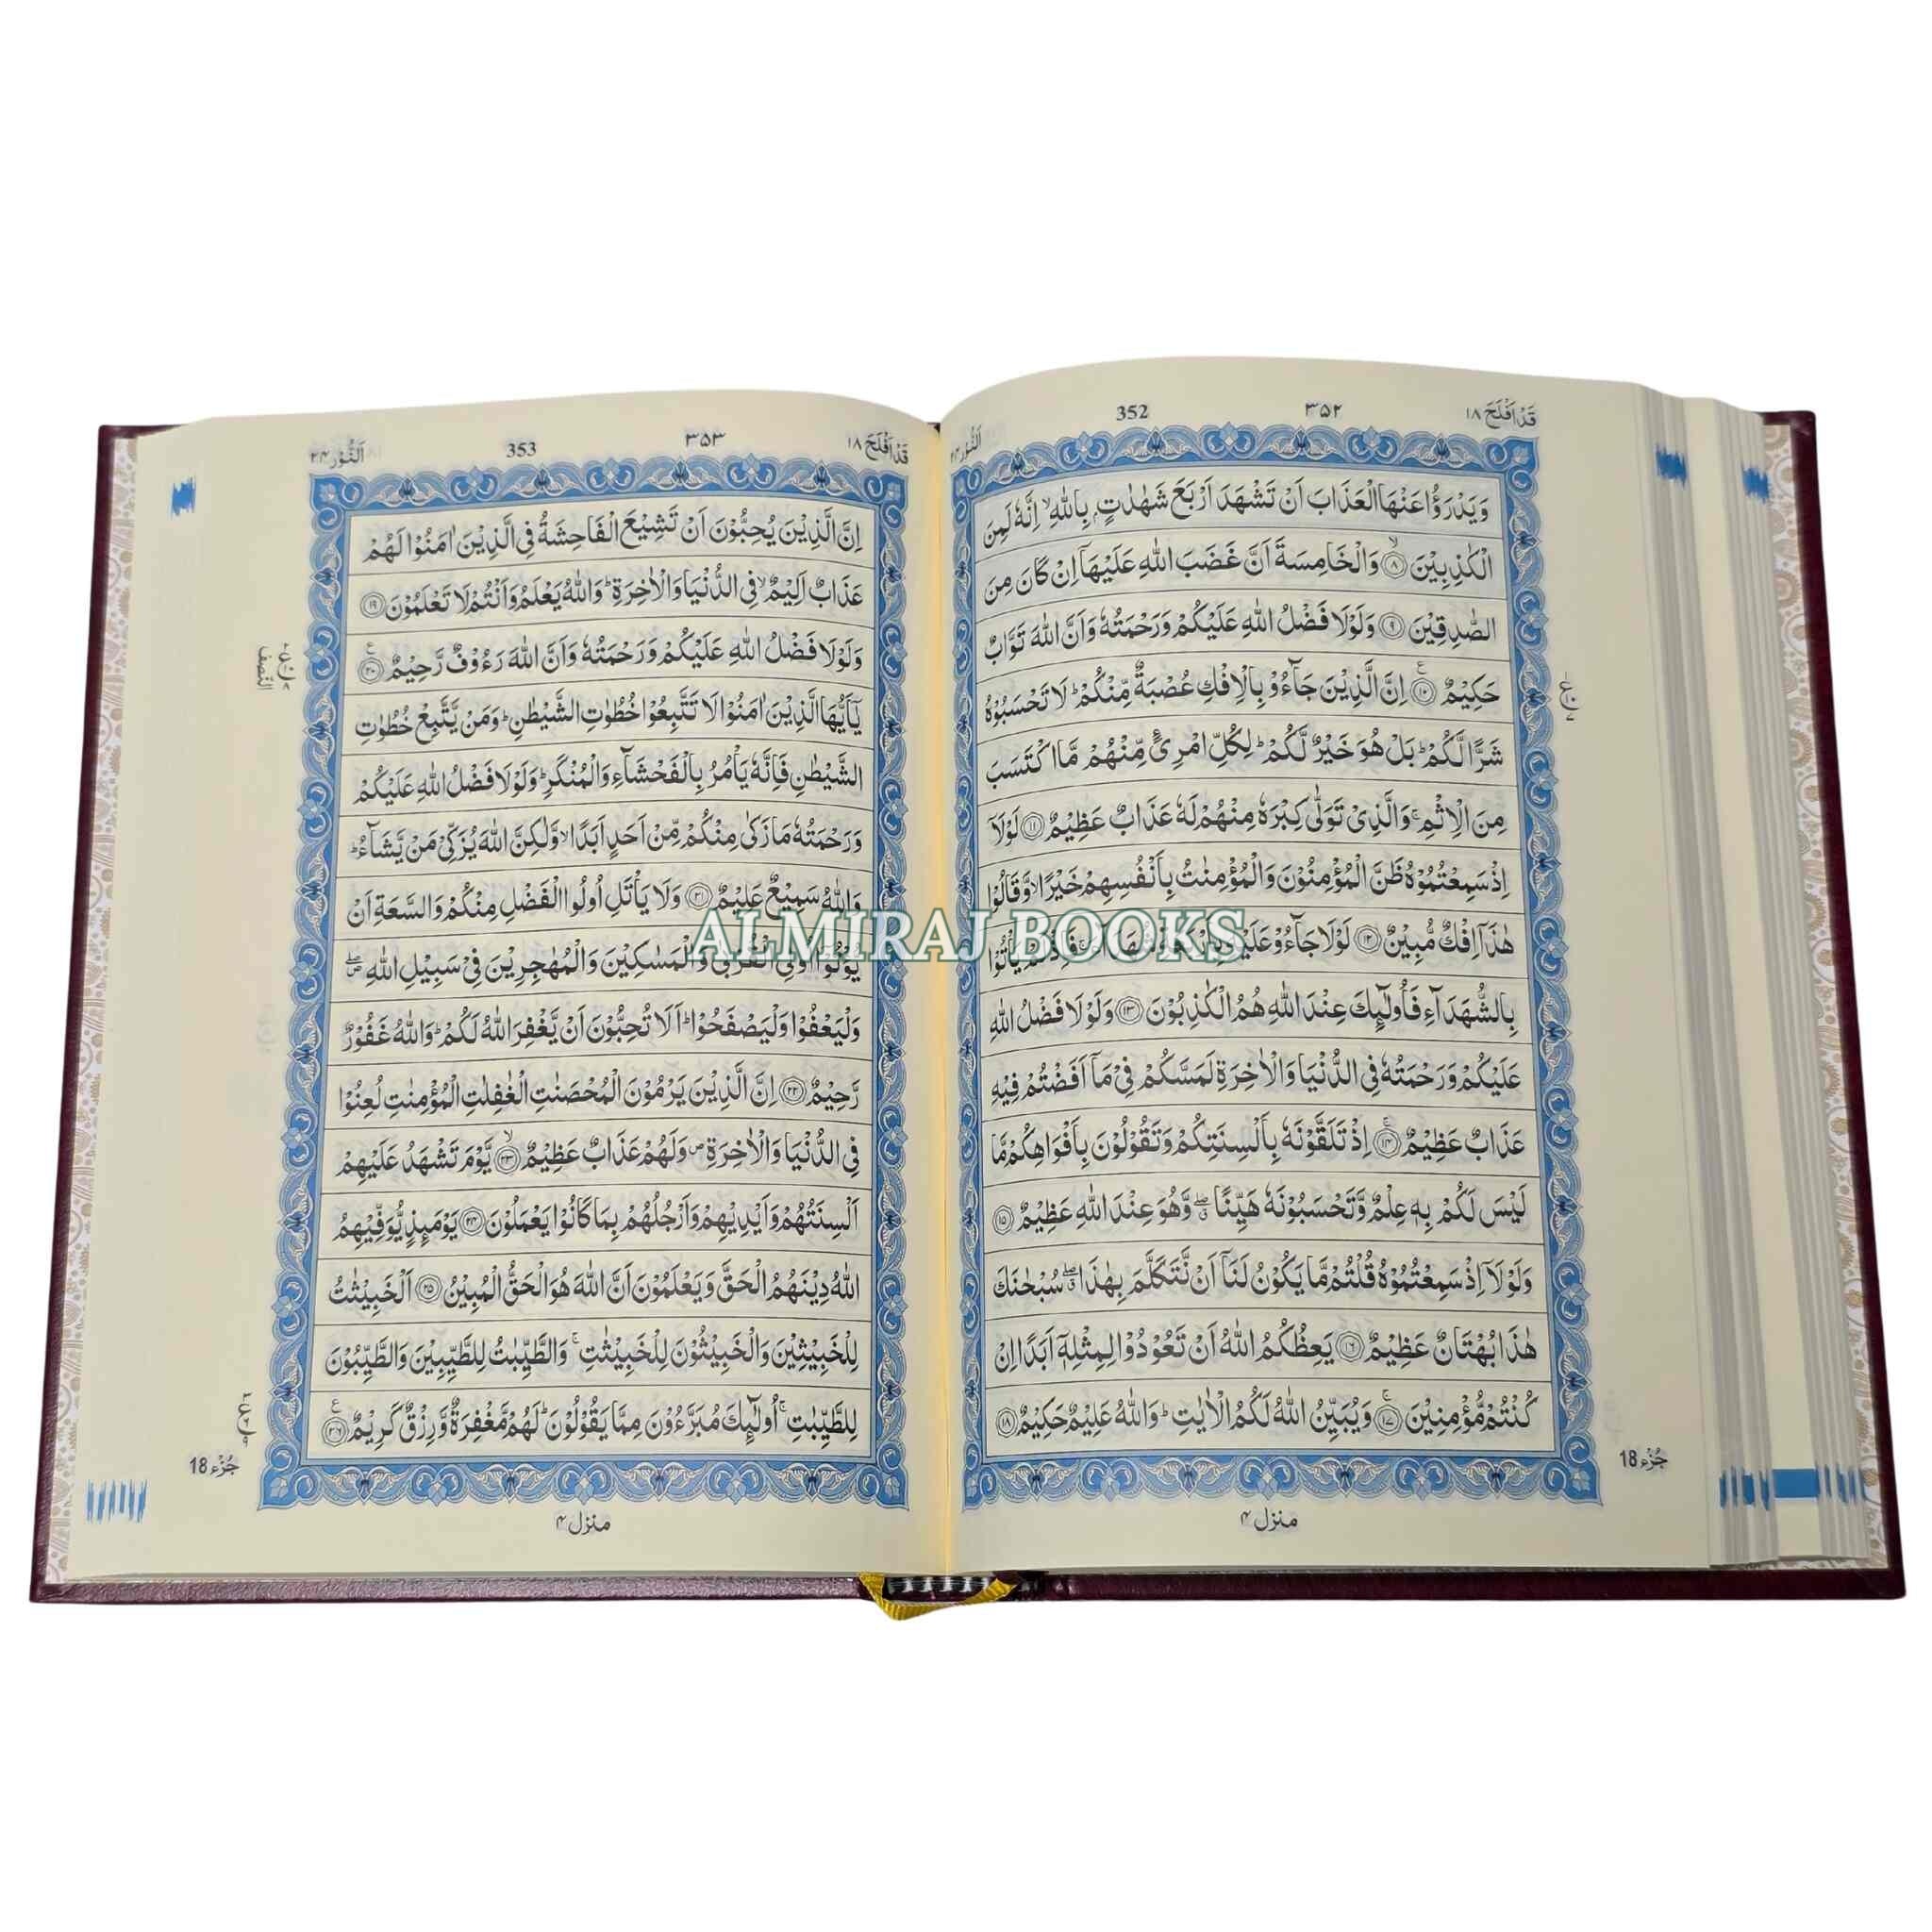 قَدْ اَفْلَحَ ١٨
٣٥٢
352
اَلنُّوْر ٢٤
وَيَدْرَؤُا عَنْهَا الْعَذَابَ اَنْ تَشْهَدَ اَرْبَعَ شَهٰدٰتٍۭ بِاللّٰهِ ۙ اِنَّهٗ لَمِنَ
الْكٰذِبِيْنَ ۙ﴿٨﴾ وَالْخَامِسَةَ اَنَّ غَضَبَ اللّٰهِ عَلَيْهَاۤ اِنْ كَانَ مِنَ
الصّٰدِقِيْنَ ﴿٩﴾ وَلَوْلَا فَضْلُ اللّٰهِ عَلَيْكُمْ وَرَحْمَتُهٗ وَاَنَّ اللّٰهَ تَوَّابٌ
حَكِيْمٌ ﴿١٠﴾ۧ اِنَّ الَّذِيْنَ جَآءُوْ بِالْاِفْكِ عُصْبَةٌ مِّنْكُمْ ؕ لَا تَحْسَبُوْهُ
شَرًّا لَّكُمْ ؕ بَلْ هُوَ خَيْرٌ لَّكُمْ ؕ لِكُلِّ امْرِیًٔ مِّنْهُمْ مَّا اكْتَسَبَ
مِنَ الْاِثْمِ ۚ وَالَّذِيْ تَوَلّٰى كِبْرَهٗ مِنْهُمْ لَهٗ عَذَابٌ عَظِيْمٌ ﴿١١﴾ لَوْلَاۤ
اِذْ سَمِعْتُمُوْهُ ظَنَّ الْمُؤْمِنُوْنَ وَالْمُؤْمِنٰتُ بِاَنْفُسِهِمْ خَيْرًا ۙ وَّقَالُوْا
هٰذَاۤ اِفْكٌ مُّبِيْنٌ ﴿١٢﴾ لَوْلَا جَآءُوْ عَلَيْهِ فَاِذْ لَمْ يَاْتُوْا
بِالشُّهَدَآءِ فَاُولٰٓئِكَ عِنْدَ اللّٰهِ هُمُ الْكٰذِبُوْنَ ﴿١٣﴾ وَلَوْلَا فَضْلُ اللّٰهِ
عَلَيْكُمْ وَرَحْمَتُهٗ فِي الدُّنْيَا وَالْاٰخِرَةِ لَمَسَّكُمْ فِيْ مَاۤ اَفَضْتُمْ فِيْهِ
عَذَابٌ عَظِيْمٌ ۚ﴿١٤﴾ اِذْ تَلَقَّوْنَهٗ بِاَلْسِنَتِكُمْ وَتَقُوْلُوْنَ بِاَفْوَاهِكُمْ مَّا
لَيْسَ لَكُمْ بِهٖ عِلْمٌ وَّتَحْسَبُوْنَهٗ هَيِّنًا ۖۗ وَّهُوَ عِنْدَ اللّٰهِ عَظِيْمٌ ﴿١٥﴾
وَلَوْلَاۤ اِذْ سَمِعْتُمُوْهُ قُلْتُمْ مَّا يَكُوْنُ لَنَاۤ اَنْ نَّتَكَلَّمَ بِهٰذَا ۖۗ سُبْحٰنَكَ
هٰذَا بُهْتَانٌ عَظِيْمٌ ﴿١٦﴾ يَعِظُكُمُ اللّٰهُ اَنْ تَعُوْدُوْا لِمِثْلِهٖۤ اَبَدًا اِنْ
كُنْتُمْ مُّؤْمِنِيْنَ ۚ﴿١٧﴾ وَيُبَيِّنُ اللّٰهُ لَكُمُ الْاٰيٰتِ ؕ وَاللّٰهُ عَلِيْمٌ حَكِيْمٌ ﴿١٨﴾
جُزْء 18
منزل ٤
قَدْ اَفْلَحَ ١٨
٣٥٣
353
اَلنُّوْر ٢٤
اِنَّ الَّذِيْنَ يُحِبُّوْنَ اَنْ تَشِيْعَ الْفَاحِشَةُ فِي الَّذِيْنَ اٰمَنُوْا لَهُمْ
عَذَابٌ اَلِيْمٌ ۙ فِي الدُّنْيَا وَالْاٰخِرَةِ ؕ وَاللّٰهُ يَعْلَمُ وَاَنْتُمْ لَا تَعْلَمُوْنَ ﴿١٩﴾
وَلَوْلَا فَضْلُ اللّٰهِ عَلَيْكُمْ وَرَحْمَتُهٗ وَاَنَّ اللّٰهَ رَءُوْفٌ رَّحِيْمٌ ﴿٢٠﴾ۧ
يٰۤاَيُّهَا الَّذِيْنَ اٰمَنُوْا لَا تَتَّبِعُوْا خُطُوٰتِ الشَّيْطٰنِ ؕ وَمَنْ يَّتَّبِعْ خُطُوٰتِ
الشَّيْطٰنِ فَاِنَّهٗ يَاْمُرُ بِالْفَحْشَآءِ وَالْمُنْكَرِ ؕ وَلَوْلَا فَضْلُ اللّٰهِ عَلَيْكُمْ
وَرَحْمَتُهٗ مَا زَكٰى مِنْكُمْ مِّنْ اَحَدٍ اَبَدًا ۙ وَّلٰكِنَّ اللّٰهَ يُزَكِّيْ مَنْ يَّشَآءُ ؕ
وَاللّٰهُ سَمِيْعٌ عَلِيْمٌ ﴿٢١﴾ وَلَا يَاْتَلِ اُولُوا الْفَضْلِ مِنْكُمْ وَالسَّعَةِ اَنْ
يُّؤْتُوْۤا اُولِي الْقُرْبٰى وَالْمَسٰكِيْنَ وَالْمُهٰجِرِيْنَ فِيْ سَبِيْلِ اللّٰهِ ۖ
وَلْيَعْفُوْا وَلْيَصْفَحُوْا ؕ اَلَا تُحِبُّوْنَ اَنْ يَّغْفِرَ اللّٰهُ لَكُمْ ؕ وَاللّٰهُ غَفُوْرٌ
رَّحِيْمٌ ﴿٢٢﴾ اِنَّ الَّذِيْنَ يَرْمُوْنَ الْمُحْصَنٰتِ الْغٰفِلٰتِ الْمُؤْمِنٰتِ لُعِنُوْا
فِي الدُّنْيَا وَالْاٰخِرَةِ ۪ وَلَهُمْ عَذَابٌ عَظِيْمٌ ۙ﴿٢٣﴾ يَّوْمَ تَشْهَدُ عَلَيْهِمْ
اَلْسِنَتُهُمْ وَاَيْدِيْهِمْ وَاَرْجُلُهُمْ بِمَا كَانُوْا يَعْمَلُوْنَ ﴿٢٤﴾ يَوْمَئِذٍ يُّوَفِّيْهِمُ
اللّٰهُ دِيْنَهُمُ الْحَقَّ وَيَعْلَمُوْنَ اَنَّ اللّٰهَ هُوَ الْحَقُّ الْمُبِيْنُ ﴿٢٥﴾ اَلْخَبِيْثٰتُ
لِلْخَبِيْثِيْنَ وَالْخَبِيْثُوْنَ لِلْخَبِيْثٰتِ ۚ وَالطَّيِّبٰتُ لِلطَّيِّبِيْنَ وَالطَّيِّبُوْنَ
لِلطَّيِّبٰتِ ۚ اُولٰٓئِكَ مُبَرَّءُوْنَ مِمَّا يَقُوْلُوْنَ ؕ لَهُمْ مَّغْفِرَةٌ وَّرِزْقٌ كَرِيْمٌ ﴿٢٦﴾ۧ
النّصف
جُزْء 18
منزل ٤
ALMIRAJ BOOKS